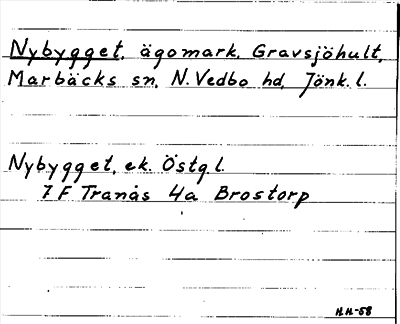 Nybygget, ägomark, Gravsjöhult,
Marbäcks sn, N. Vedbo hd, Jönk. l.
Nybygget, ek. Östg. l.
7 F Tranås 4a Brostorp
H.H-58